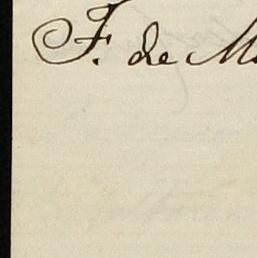 F. de M